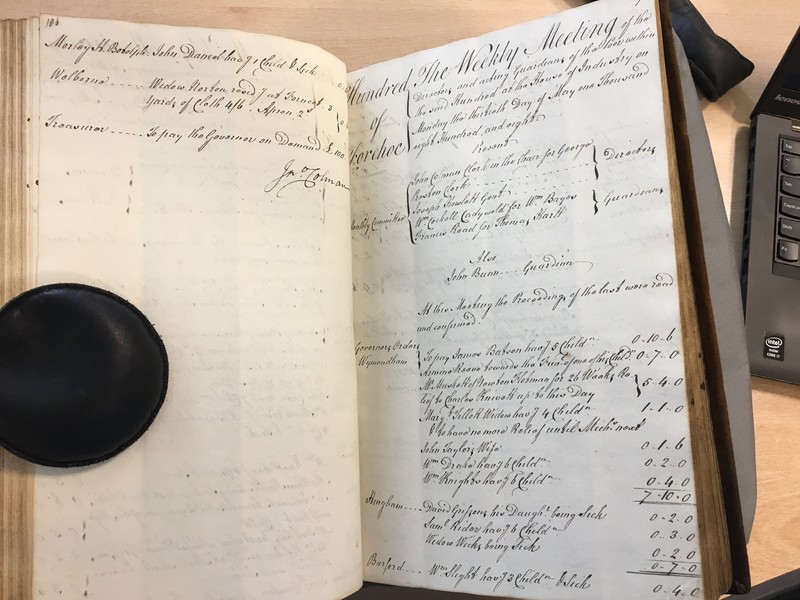 106
Morley St. Botolph. John Daniel hav.g 1 Child & Sick
Welborne ---- Widow Norton
Yards of Cloth 4/6. Apron 2s
Treasurer ---- To pay the Governor on Demand £100
Jno. Colman
Hundred
of
Forehoe
The Weekly Meeting of the
Directors and acting Guardians of the Poor within
the said Hundred at the House of Industry, on
Monday the thirtieth Day of May one Thousand
eight Hundred and eight
Present
Weekly Committee
John Colman Clerk in the Chair for George
Preston Clerk
Joseph Howlett Gent
Directors
Wm. Cockell Ladywold for Wm. Bayes
Francis Read for Thomas Hartt
Guardians
Also
John Bunn ---- Guardian
At this Meeting the Proceedings of the last were read
and confirmed
Governors Orders
Wymondham
To pay James Batson hav.g 5 Childn. 0-10-6
towards the of one of his Child. 0-7-0
Mr. of Newton Flotman for 26 Weeks Re
lief to Charles up to this Day 5-4-0
Margt. Tillett Widow hav.g 4 Childn. 1-1-0
& to have no more Relief until Michs. next
John Taylors Wife 0-1-6
Wm. Drake hav.g 6 Childn. 0-2-0
Wm. Knights hav.g 6 Childn. 0-4-0
7-10-0
Hingham ---- David Gripsons his Daughr. being Sick 0-2-0
Saml. hav.g 6 Childn. 0-3-0
Widow Weeks being Sick 0-2-0
0-7-0
Barford ---- Wm. Sleght hav.g 3 Childn. & Sick 0-4-0
lenovo
Esc
Tab
CapsLock
Shift
Fn
intel
CORE i7